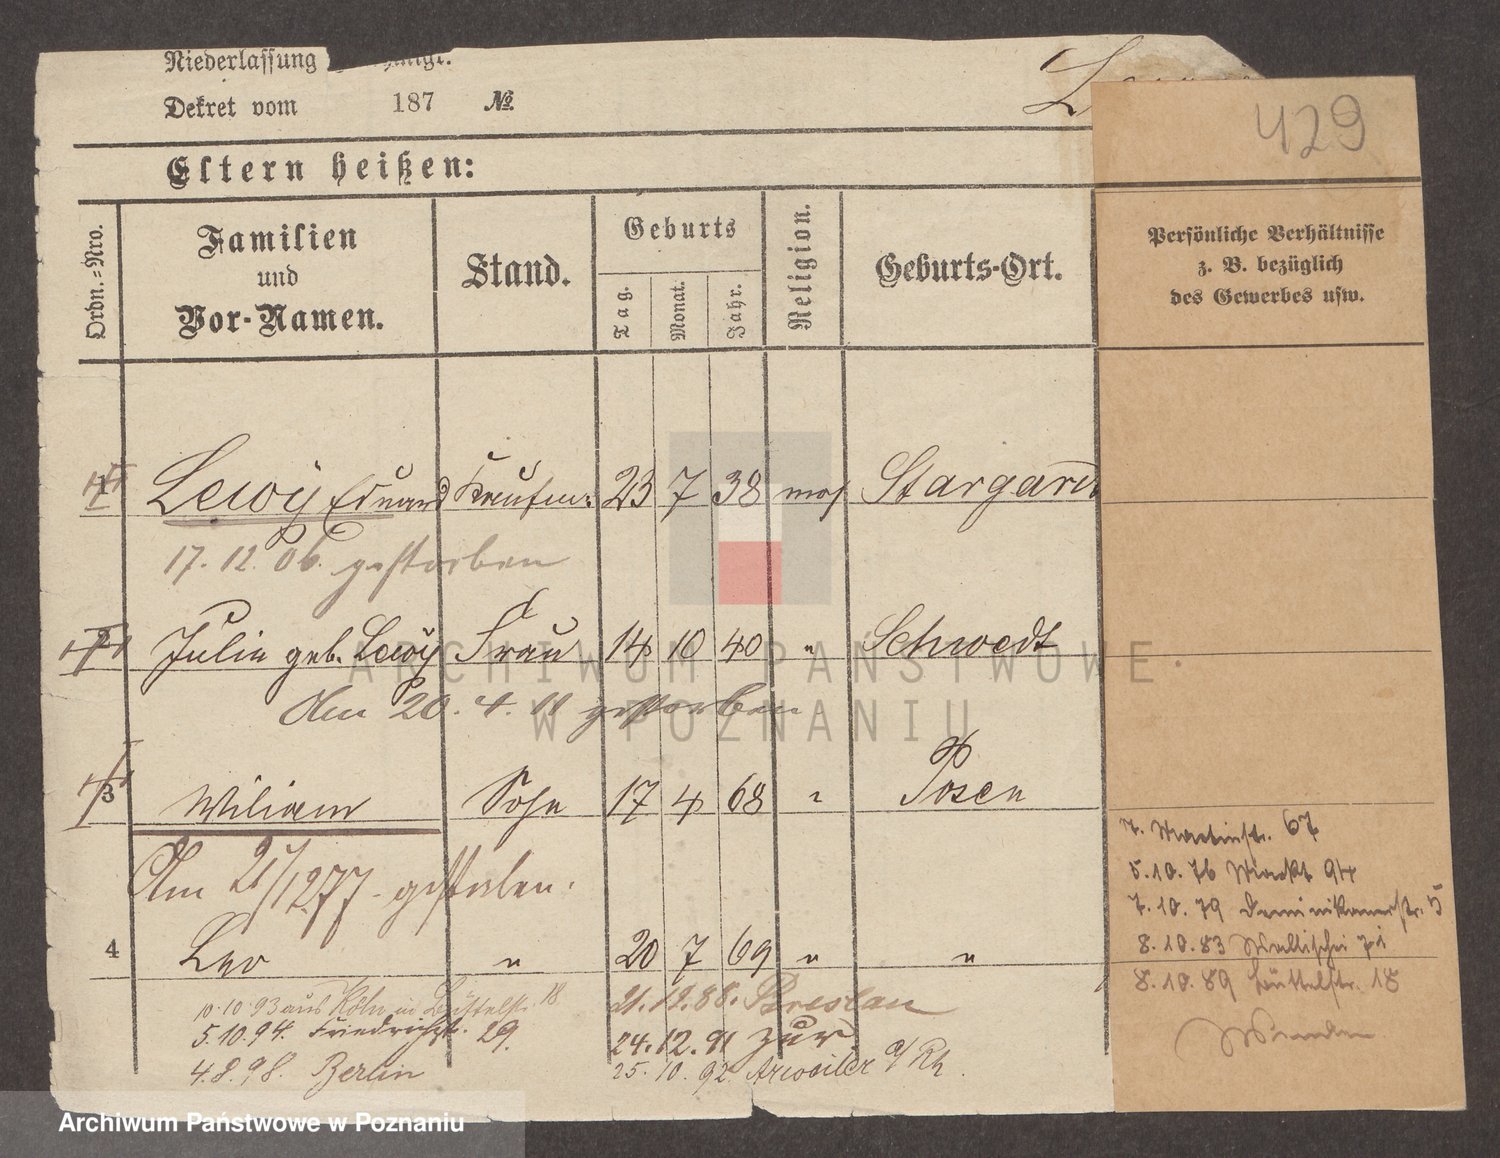 Niederlassung
Dekret vom 187 №.
L
429
Eltern heißen:
Ordn.-Nro.
Familien
und
Vor-Namen.
Stand.
Geburts
Tag.
Monat.
Jahr.
Religion.
Geburts-Ort.
Persönliche Verhältnisse
z. B. bezüglich
des Gewerbes usw.
1 Lewy Eduard Kaufm. 23 7 38 mos Stargard
17.12.06. gestorben
2 Julie geb. Lewy Frau 14 10 40 " Schwedt
Am 20.4.11 gestorben
3 Wiliam Sohn 17 4 68 " Posen
Am 21/12 77 gestorben.
4 Leo " 20 7 69 " "
10.10.93 aus Köln in Büttelst. 18
5.10.94. Friedrichstr. 29.
4.8.98. Berlin
21.12.88. Breslau
24.12.91 zur.
25.10.92. Arweiler a/Rh.
7. Martinstr. 67
5.10.76 Markt 94
7.10.79 Dominikanerstr. 5
8.10.83 Wallischei
8.10.89 Büttelstr. 18
ARCHIWUM PAŃSTWOWE
W POZNANIU
Archiwum Państwowe w Poznaniu